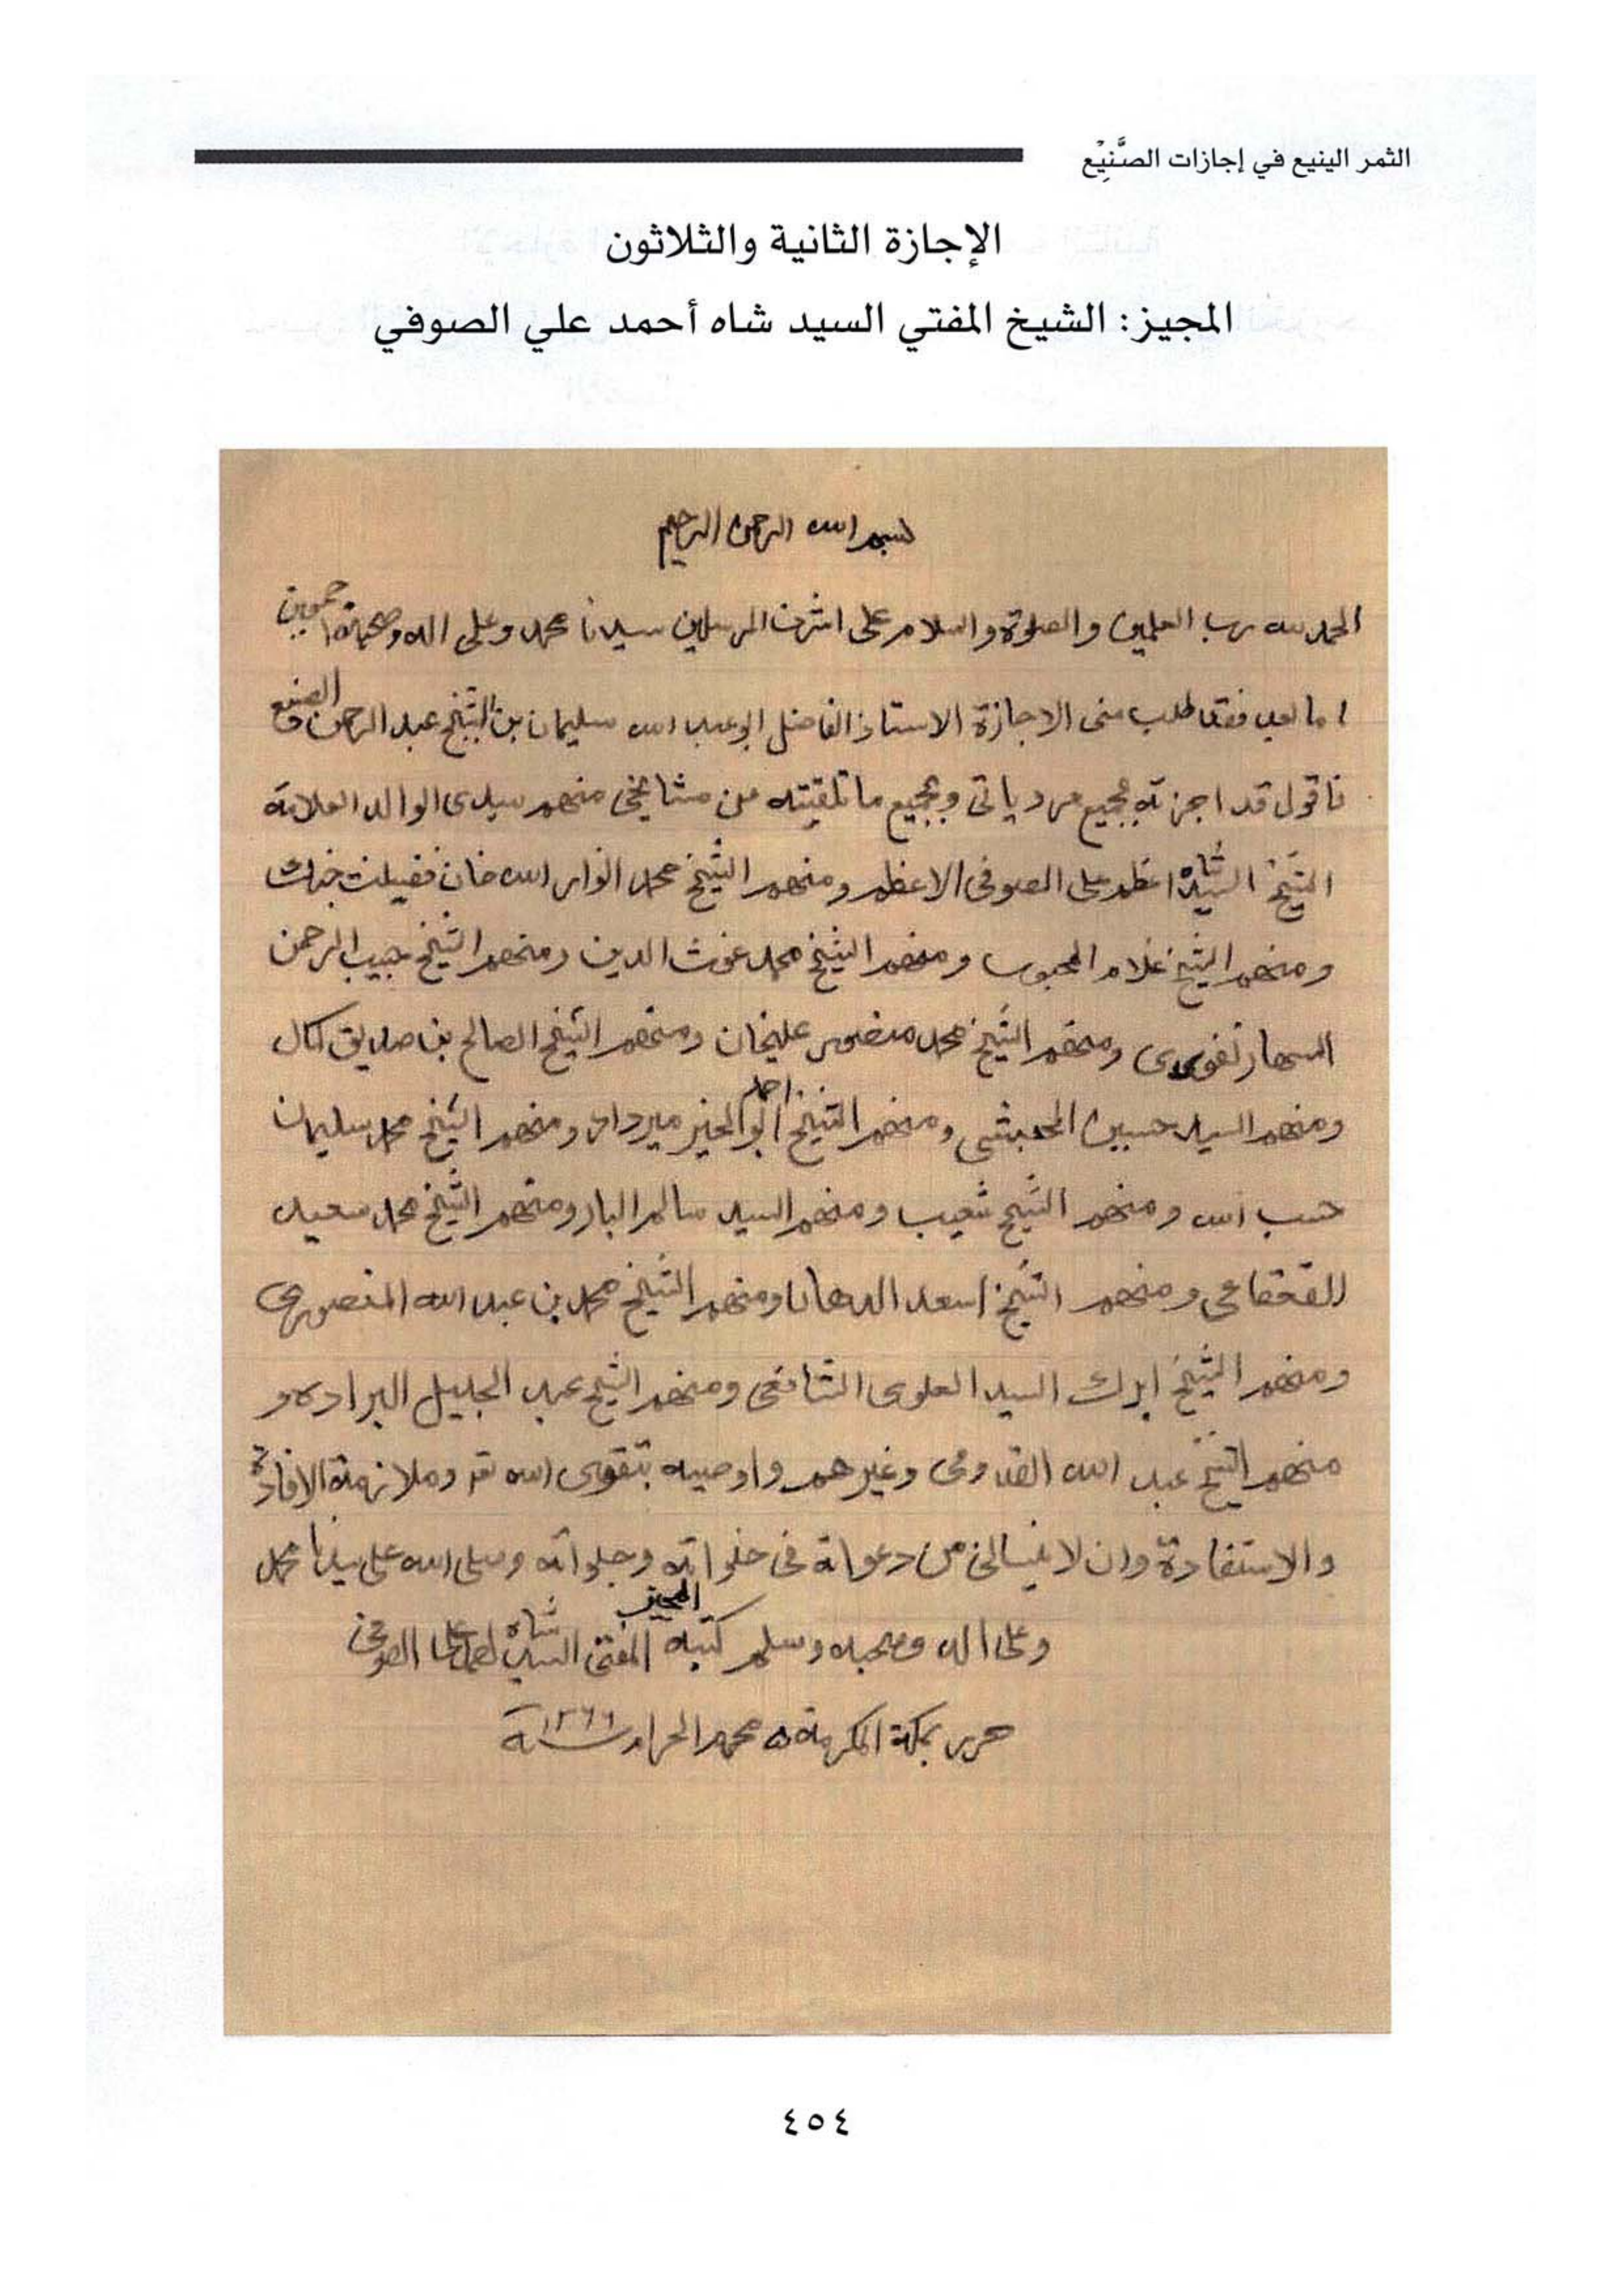 الثمر الينيع في إجازات الصَّنِيْع
الإجازة الثانية والثلاثون
المجيز: الشيخ المفتي السيد شاه أحمد علي الصوفي
بسم الله الرحمن الرحيم
الحمد لله رب العلمين والصلوة والسلام على اشرف المرسلين سيدنا محمد وعلى اله وصحبه اجمعين
اما بعد فقد طلب منى الاجازة الاستاذ الفاضل ابو عبد الله سليمان بن الشيخ عبد الرحمن الصنيع
فاقول قد اجزته بجميع مروياتى وبجميع ما تلقيته من مشايخى منهم سيدى الوالد العلامة
الشيخ السيد شاه اعظم على الصوفى الاعظم ومنهم الشيخ محمد انوار الله خان فضيلت جنك
ومنهم الشيخ غلام المحبوب ومنهم الشيخ محمد غوث الدين ومنهم الشيخ حبيب الرحمن
السهارنفورى ومنهم الشيخ محمد منصور عليخان ومنهم الشيخ الصالح بن صديق كمال
ومنهم السيد حسين الحبشى ومنهم الشيخ احمد ابو الخير ميرداد ومنهم الشيخ محمد سليمان
حسب الله ومنهم الشيخ شعيب ومنهم السيد سالم البار ومنهم الشيخ محمد سعيد
القعقاعى ومنهم الشيخ اسعد الدهان ومنهم الشيخ محمد بن عبد الله المنصورى
ومنهم الشيخ السيد العلوى الشافعى ومنهم الشيخ عبد الجليل البراده و
منهم الشيخ عبد الله القدومى وغيرهم واوصيه بتقوى الله تع وملازمة الافادة
والاستفادة وان لا ينسانى من دعواته فى خلواته وجلواته وصلى الله على سيدنا محمد
وعلى اله وصحبه وسلم كتبه المجيز المفتى السيد شاه احمد على الصوفى
حرر بمكة المكرمة ٥ محرم الحرام سنة ١٣٦٦
٤٥٤